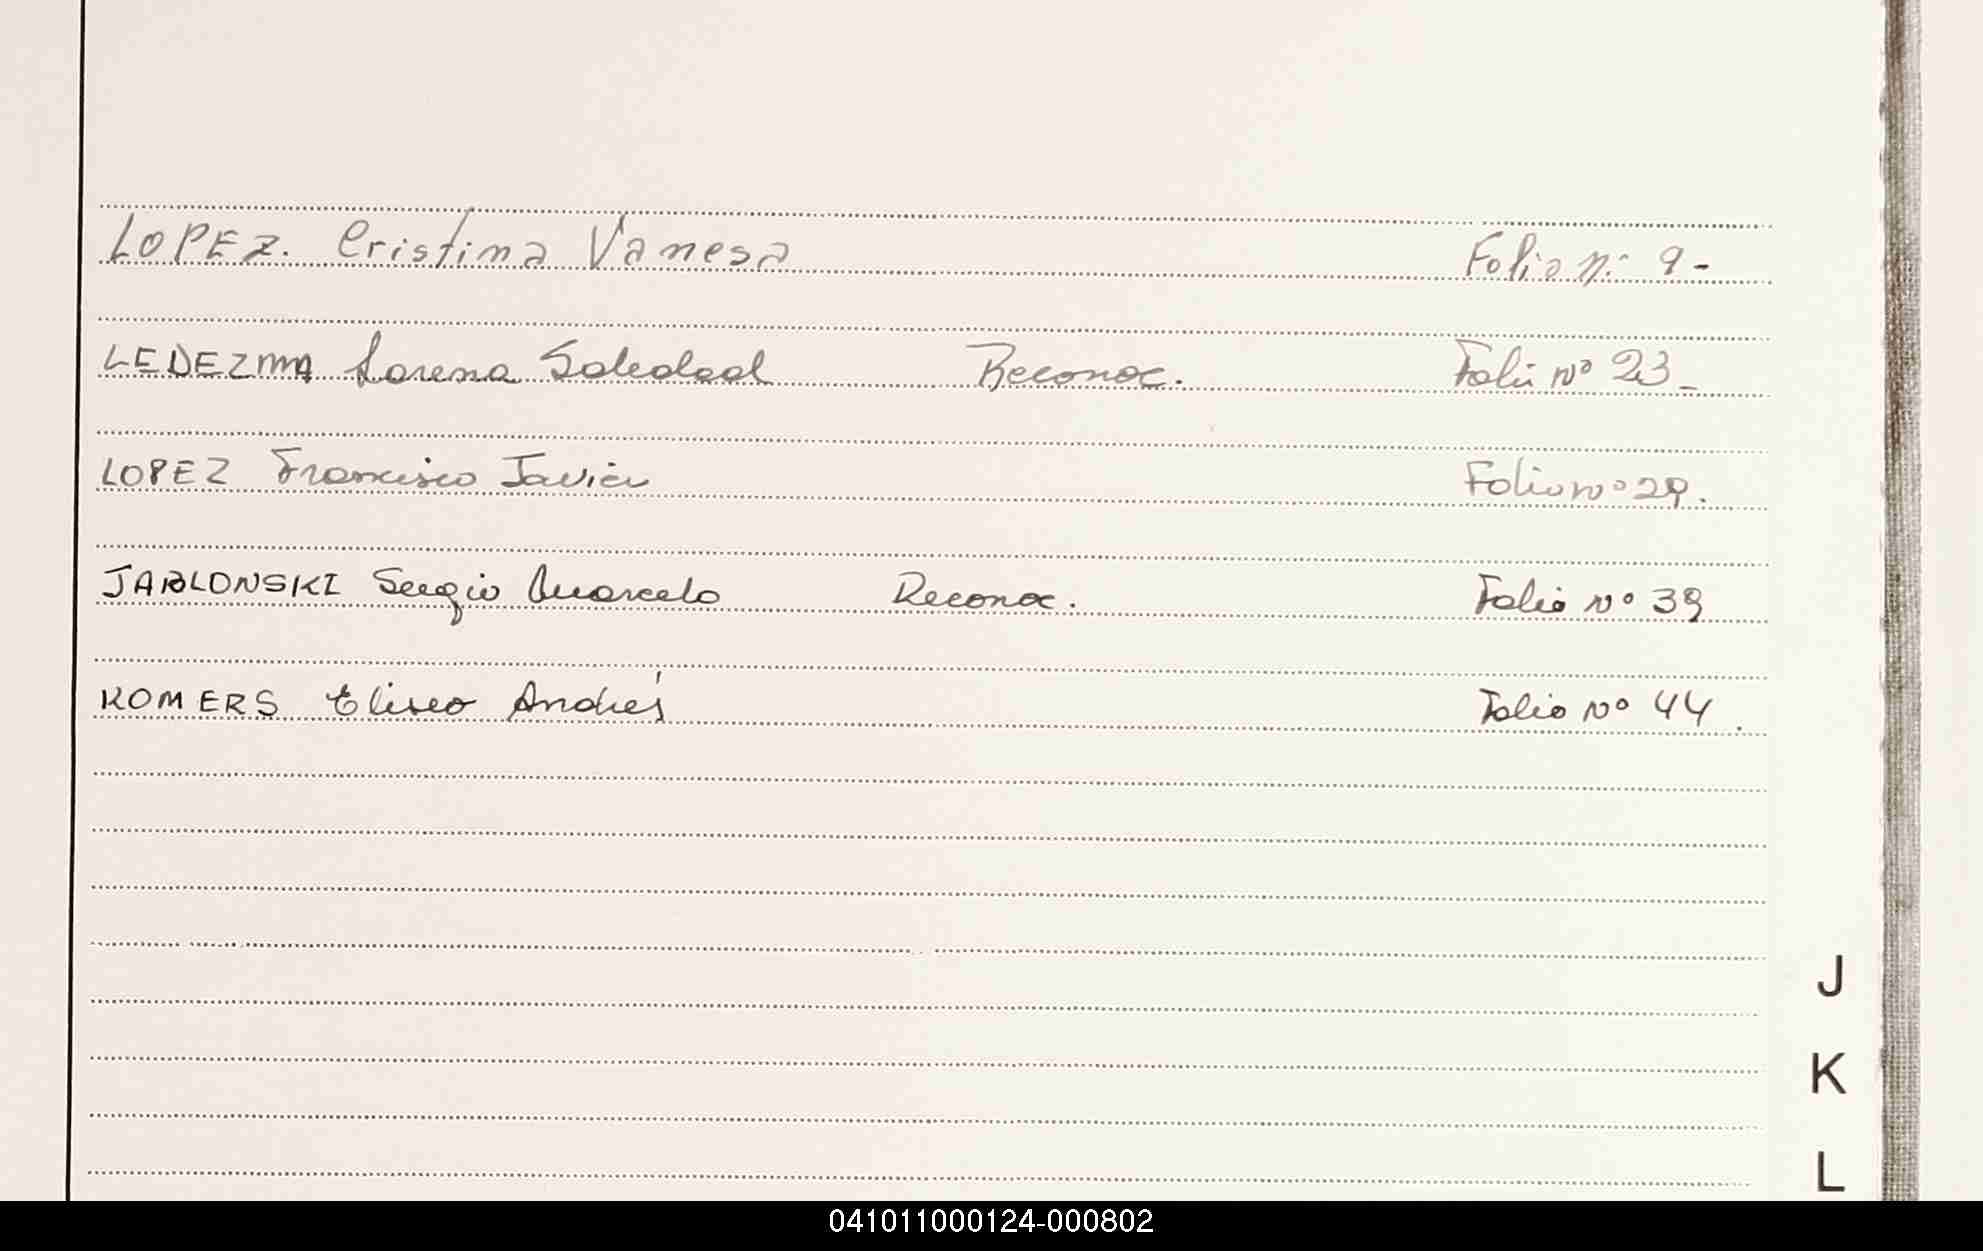 LOPEZ. Cristina Vanesa Folio n:- 9-
LEDEZMA Lorena Soledad Reconoc. Folio nº 23-
LOPEZ Francisco Javier Folio nº 29.
JABLONSKI Sergio Marcelo Reconoc. Folio Nº 39
KOMERS Eliseo Andrés Folio Nº 44.
J
K
L
041011000124-000802